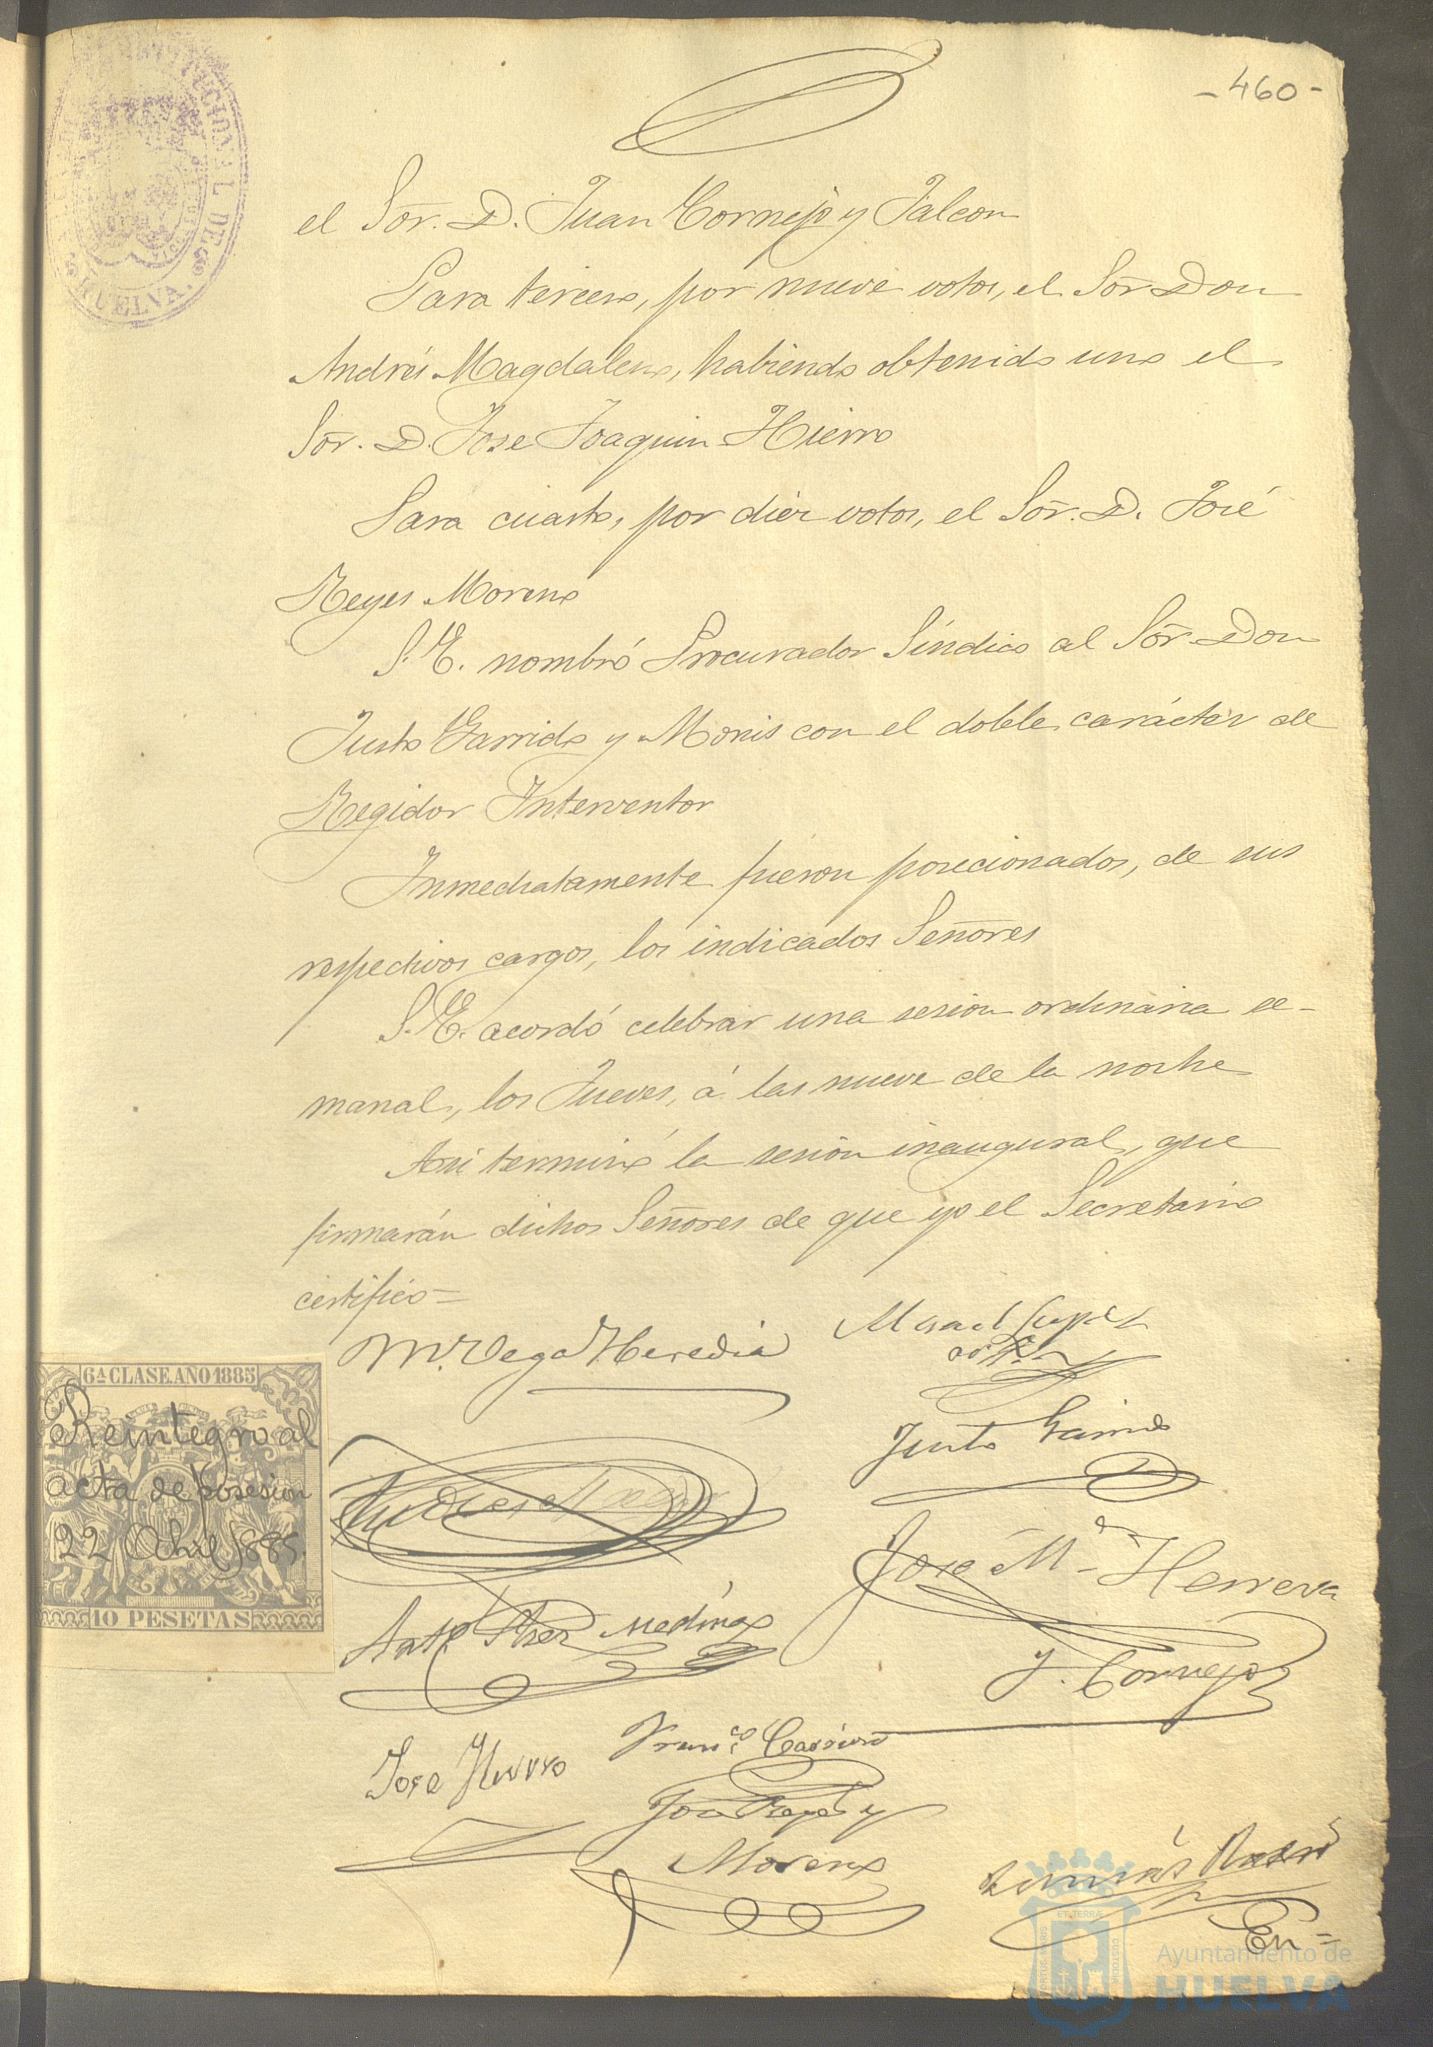 -460-
el Sor. D. Juan Cornejo y Falcon
Para tercero, por nueve votos, el Sor. Don
Andrés Magdaleno, habiendo obtenido uno el
Sor. D. Jose Joaquin Hierro
Para cuarto, por diez votos, el Sor. D. José
Reyes Moreno
S. E. nombró Procurador Síndico al Sor. Don
Justo Garrido y Monis con el doble carácter de
Regidor Interventor
Inmediatamente fueron posecionados, de sus
respectivos cargos, los indicados Señores
S. E. acordó celebrar una sesion ordinaria se-
manal, los Jueves, á las nueve de la noche
Asi terminó la sesión inaugural, que
firmarán dichos Señores de que yo el Secretario
certifico=
M. Vega Heredia
Justo Garrido
6ª CLASE. AÑO 1885
Reintegro al
acta de posesion
22 Obre 1885.
10 PESETAS
José Mª Herrera
Medina
J. Cornejo
Jose Hierro
Franco
Jose Reyes y
Moreno
Tomás
En=
HUELVA.
Ayuntamiento de
HUELVA